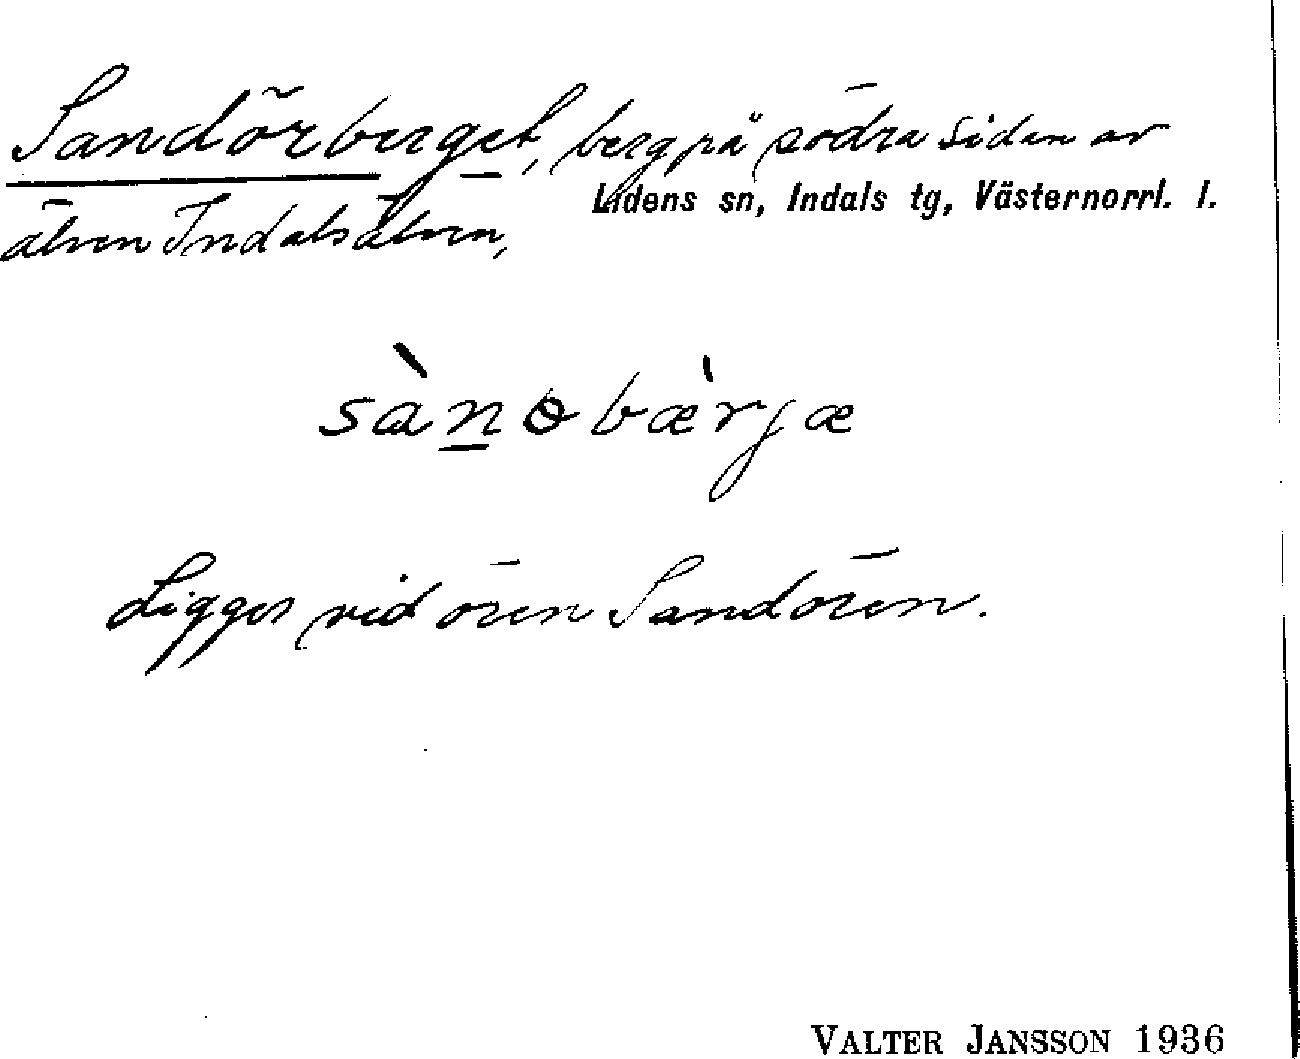 Sandörberget, berg på södra sidan av
Lidens sn, Indals tg, Västernorrl. l.
älven Indalsälven,
sànobæ̀rjæ
Ligger vid ören Sandören.
VALTER JANSSON 1936